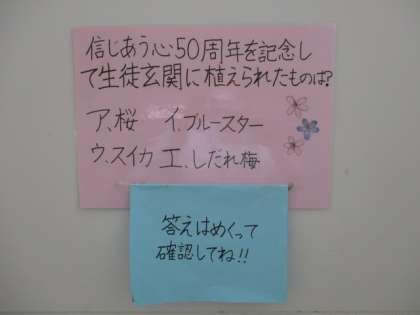 信じあう心50周年を記念し
て生徒玄関に植えられたものは?
ア、桜 イ、ブルースター
ウ、スイカ エ、しだれ梅
答えはめくって
確認してね!!